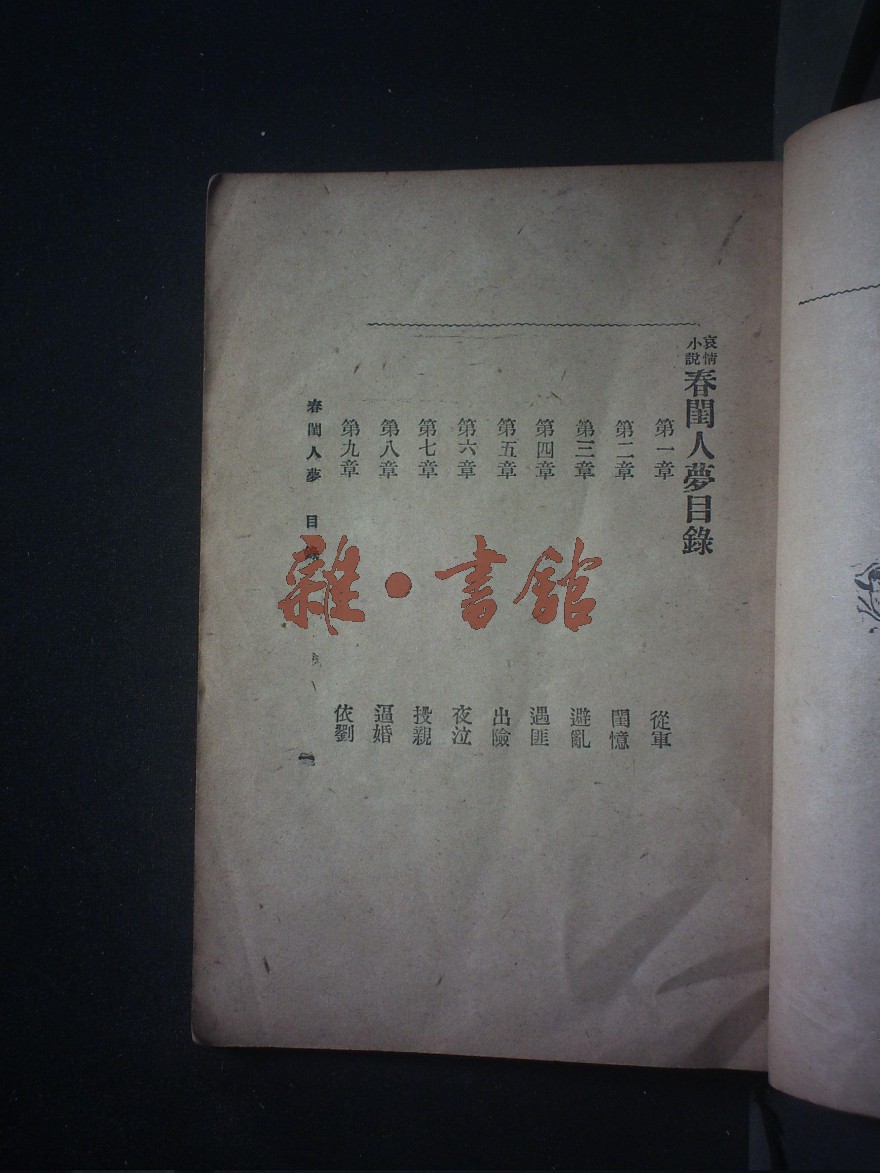 哀情小說 春閨人夢目錄
第一章 從軍
第二章 閨憶
第三章 避亂
第四章 遇匪
第五章 出險
第六章 夜泣
第七章 投親
第八章 逼婚
第九章 依劉
春閨人夢 目
一
雜·書館